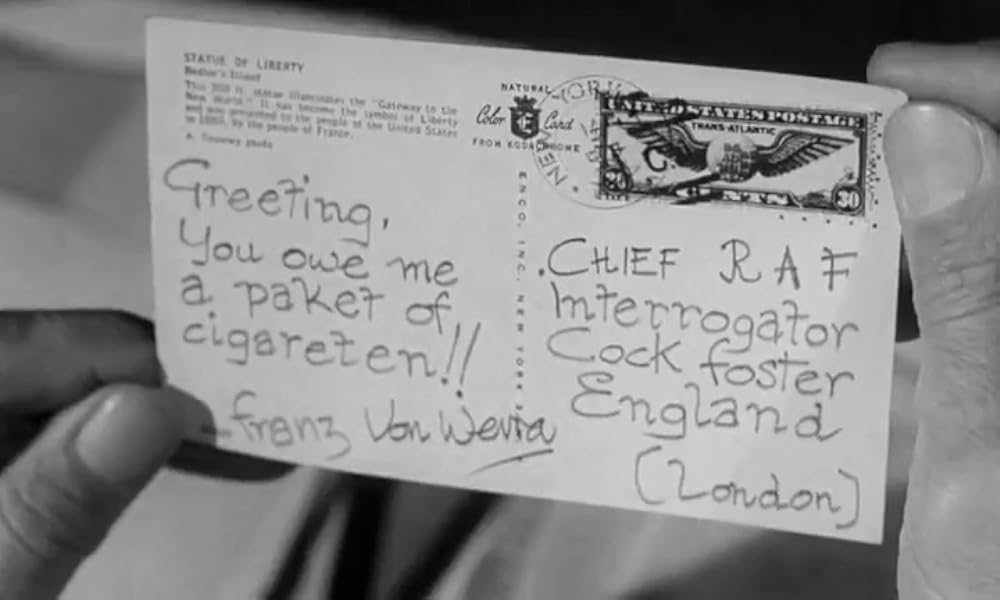 STATUE OF LIBERTY
Bedloe's Island
This statue illuminates the "Gateway to the
New World." It has become the symbol of Liberty
and was presented to the people of the United States
by the people of France.
photo
NATURAL
Color E Card
FROM KODACHROME
NEW YORK
UNITED STATES POSTAGE
TRANS-ATLANTIC
30 CENTS 30
Greeting,
You owe me
a paket of
cigareten!!
- Franz Von Werra
ENCO, INC. NEW YORK
.CHIEF RAF
Interrogator
Cock foster
England
(London)